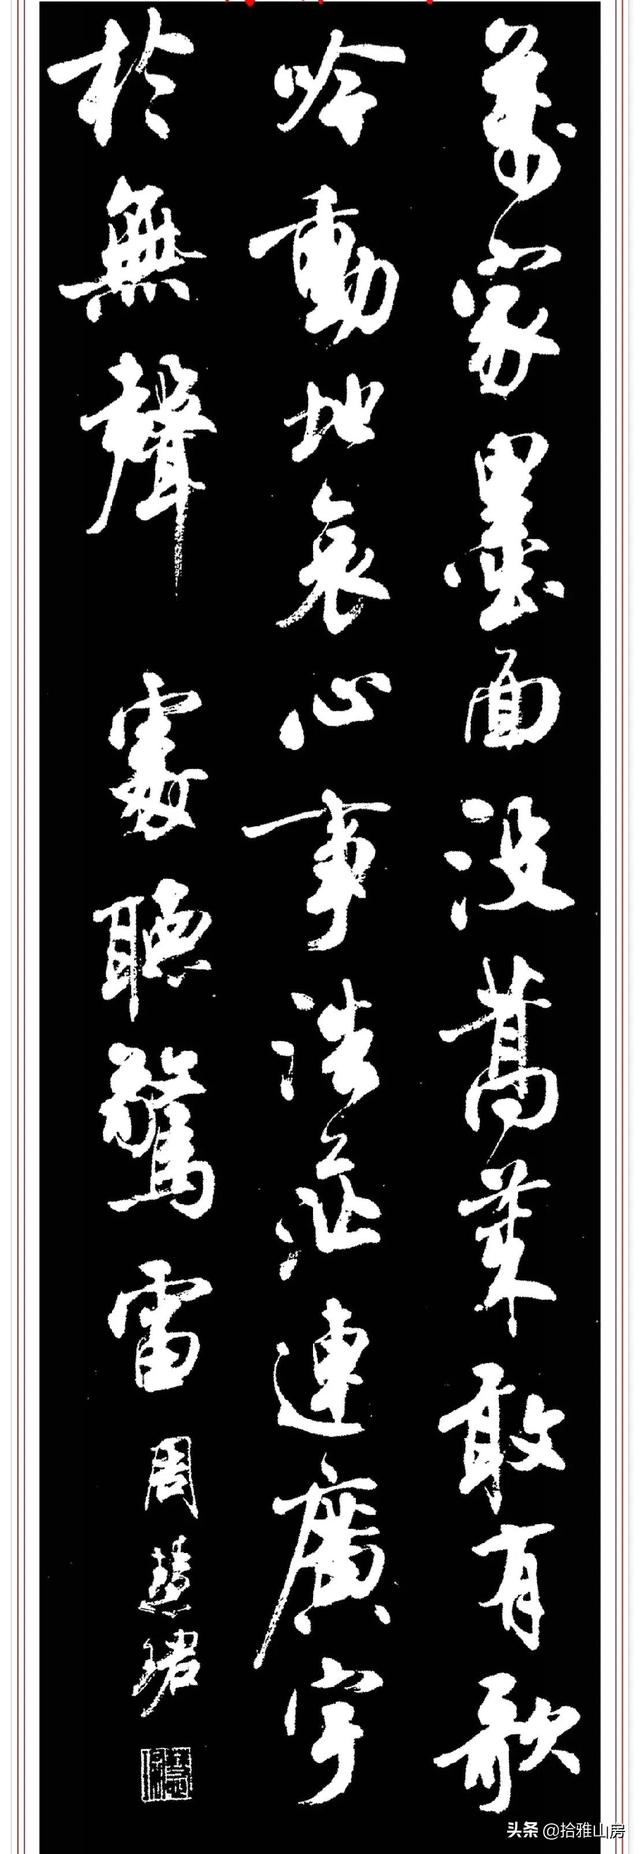 萬家墨面没蒿莱敢有歌
吟動地哀心事浩茫連廣宇
於無聲處聽驚雷
周慧珺
头条 @拾雅山房